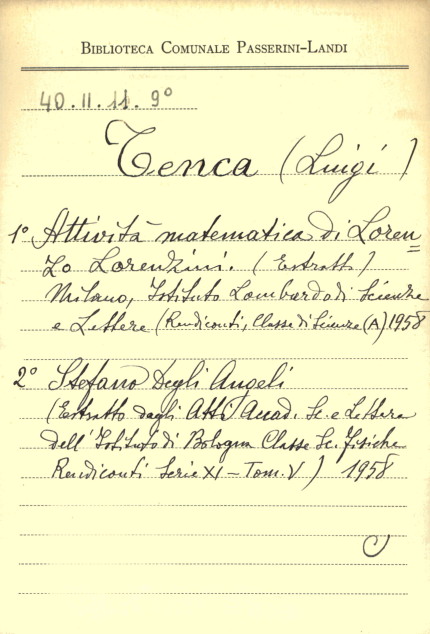 BIBLIOTECA COMUNALE PASSERINI-LANDI
40.II.11.9°
Tenca (Luigi)
1° Attività matematica di Loren=
zo Lorenzini. (Estratto)
Milano, Istituto Lombardo di Scienze
e Lettere (Rendiconti, Classe di Scienze (A) 1958
2° Stefano Degli Angeli
(Estratto dagli Atti Accad. Sc. e Lettere
dell'Istituto di Bologna Classe Sc. fisiche
Rendiconti Serie XI - Tom. V) 1958